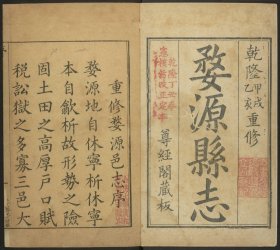 乾隆甲戌乙亥重修
婺源縣志
尊經閣藏板
乾隆丁丑春
重修婺源邑志序
婺源地自休寧析休寧
本自歙析故形勢之險
固土田之高厚戶口賦
稅訟獄之多寡三邑大